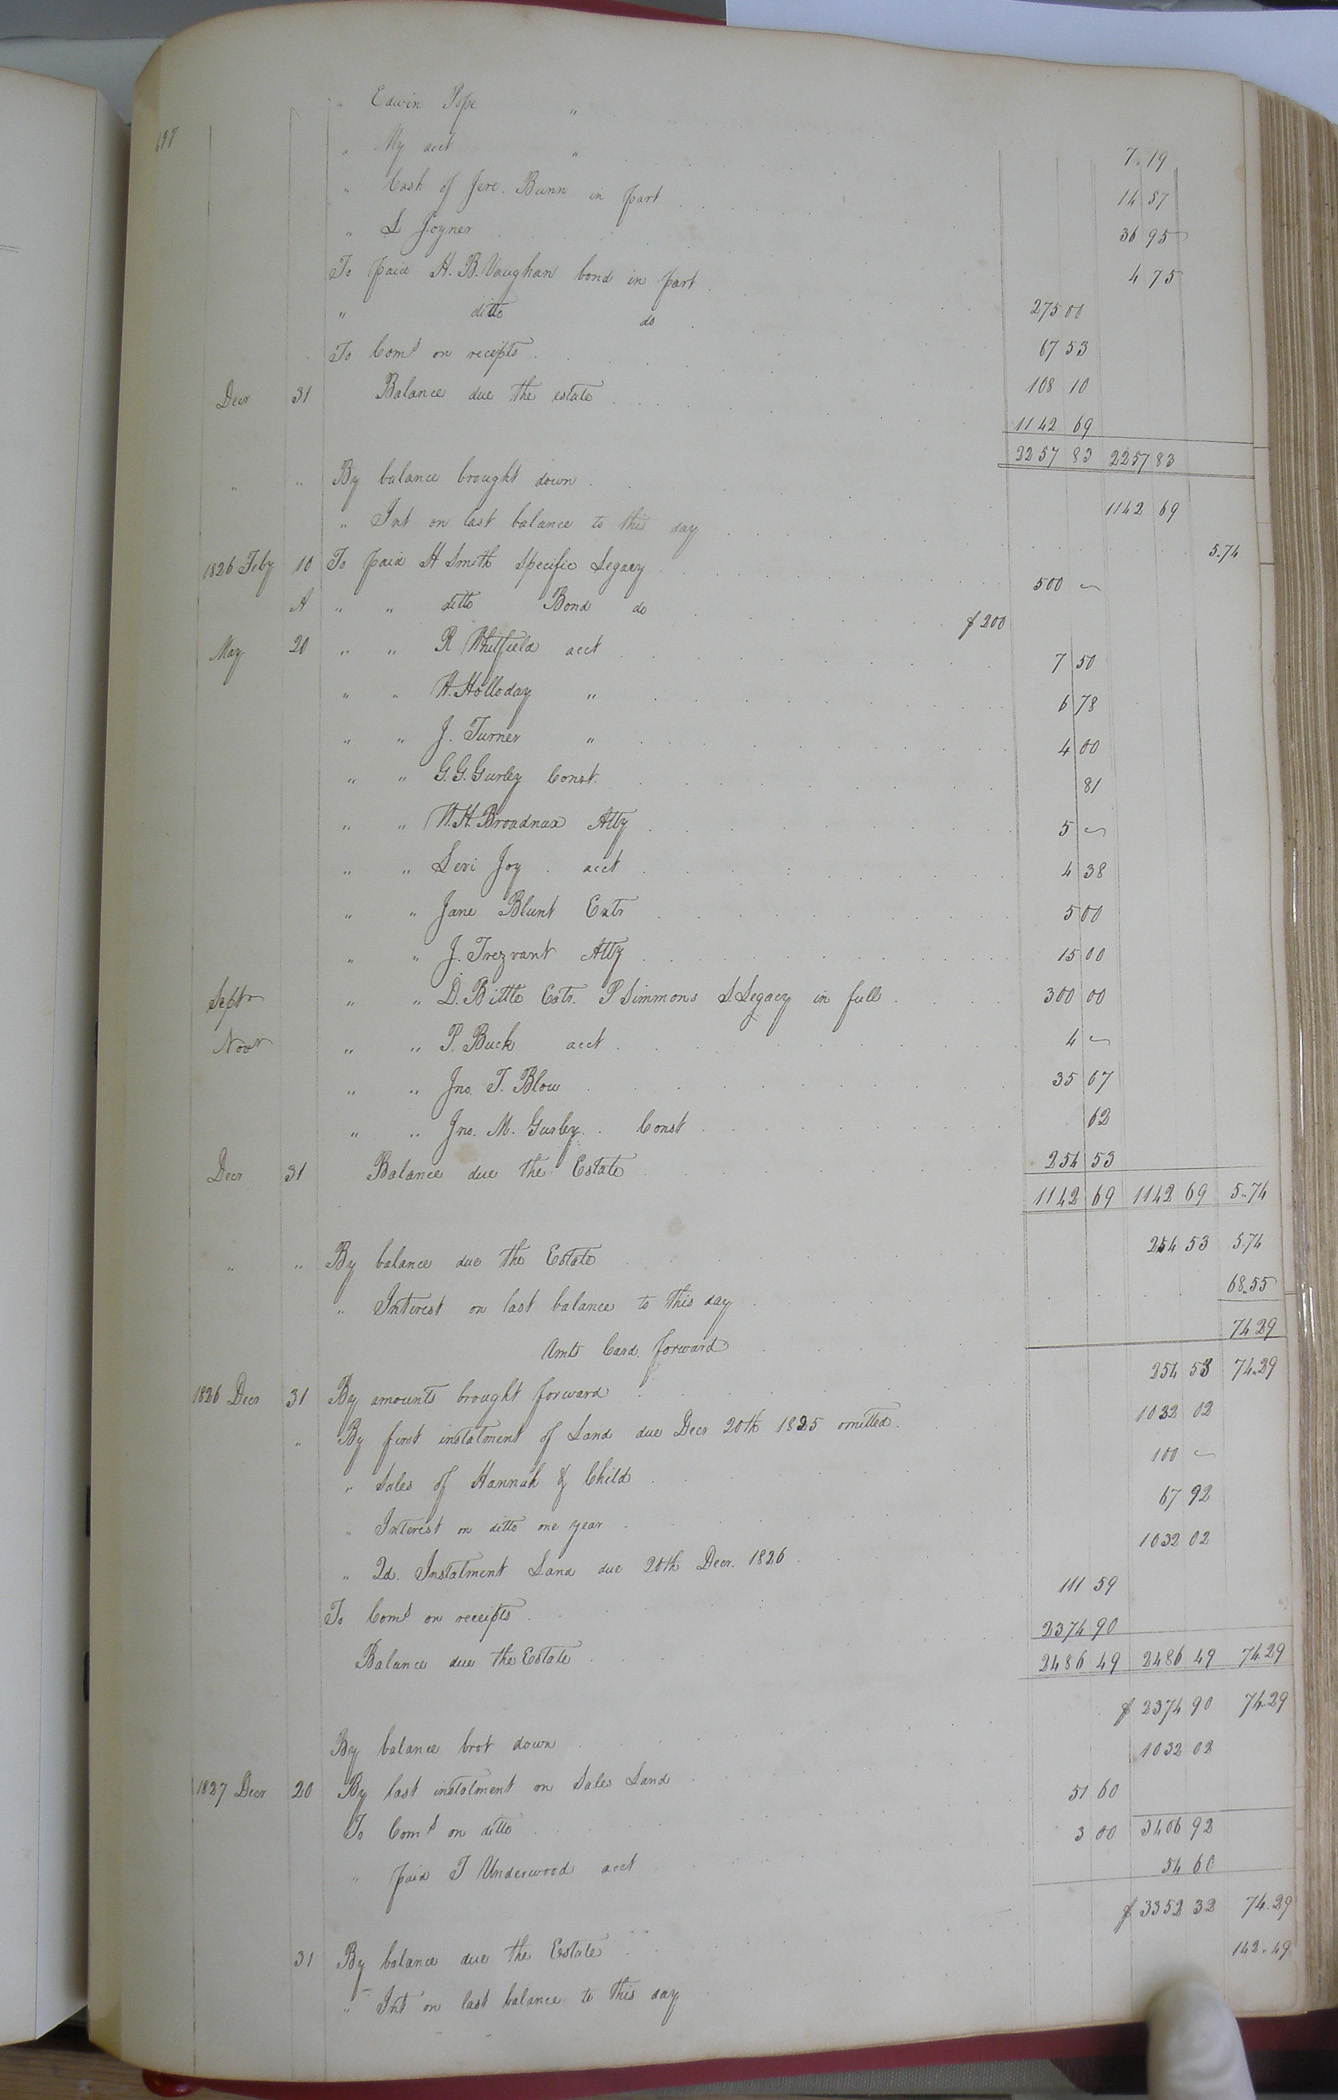 " Edwin Pope " 7.19
" My acct " 14 57
" Cash of Jere. Bunn in part 36 95
" S Joyner 4 75
To paid H. B. Vaughan bond in part 275 00
" ditto do 67 53
To Coms on receipts 108 10
Decr 31 Balance due the estate 1142 69
2257 83 2257 83
" " By balance brought down 1142 69
" Int on last balance to this day 5.74
1826 Feby 10 To paid H Smith specific Legacy 500
" " ditto Bond do $200
May 20 " " R Whitfield acct 7 50
" " H. Holloday " 6 78
" " J. Turner " 4 00
" " G. G. Gurley Const. 81
" " W. H. Broadnax Atty 5
" " Levi Joy acct 4 38
" " Jane Blunt Extr 5 00
" " J. Trezvant Atty 15 00
Septr " " D. Bittle Extr. P Simmons S. Legacy in full 300 00
Novr " " P. Buck acct 4
" " Jno. T. Blow 35 67
" " Jno. M. Gurley Const 62
Decr 31 Balance due the Estate 254 53
1142 69 1142 69 5.74
" " By balance due the Estate 254 53 5.74
" Interest on last balance to this day 68.55
74.29
Amts Card. forward
1826 Decr 31 By amounts brought forward 254 53 74.29
" By first instalment of Land due Decr 20th 1825 omitted 1032 02
" Sales of Hannah & Child 100
" Interest on ditto one year 67 92
" 2d. Instalment Land due 20th Decr. 1826 1032 02
To Coms on receipts 111 59
Balance due the Estate 2374 90
2486 49 2486 49 74.29
By balance brot down $ 2374 90 74.29
1827 Decr 20 By last instalment on Sales Land 1032 02
To Coms on ditto 51 60
" paid T Underwood acct 3 00 3406 92
54 60
31 By balance due the Estate $ 3352 32 74.29
" Int on last balance to this day 142.49